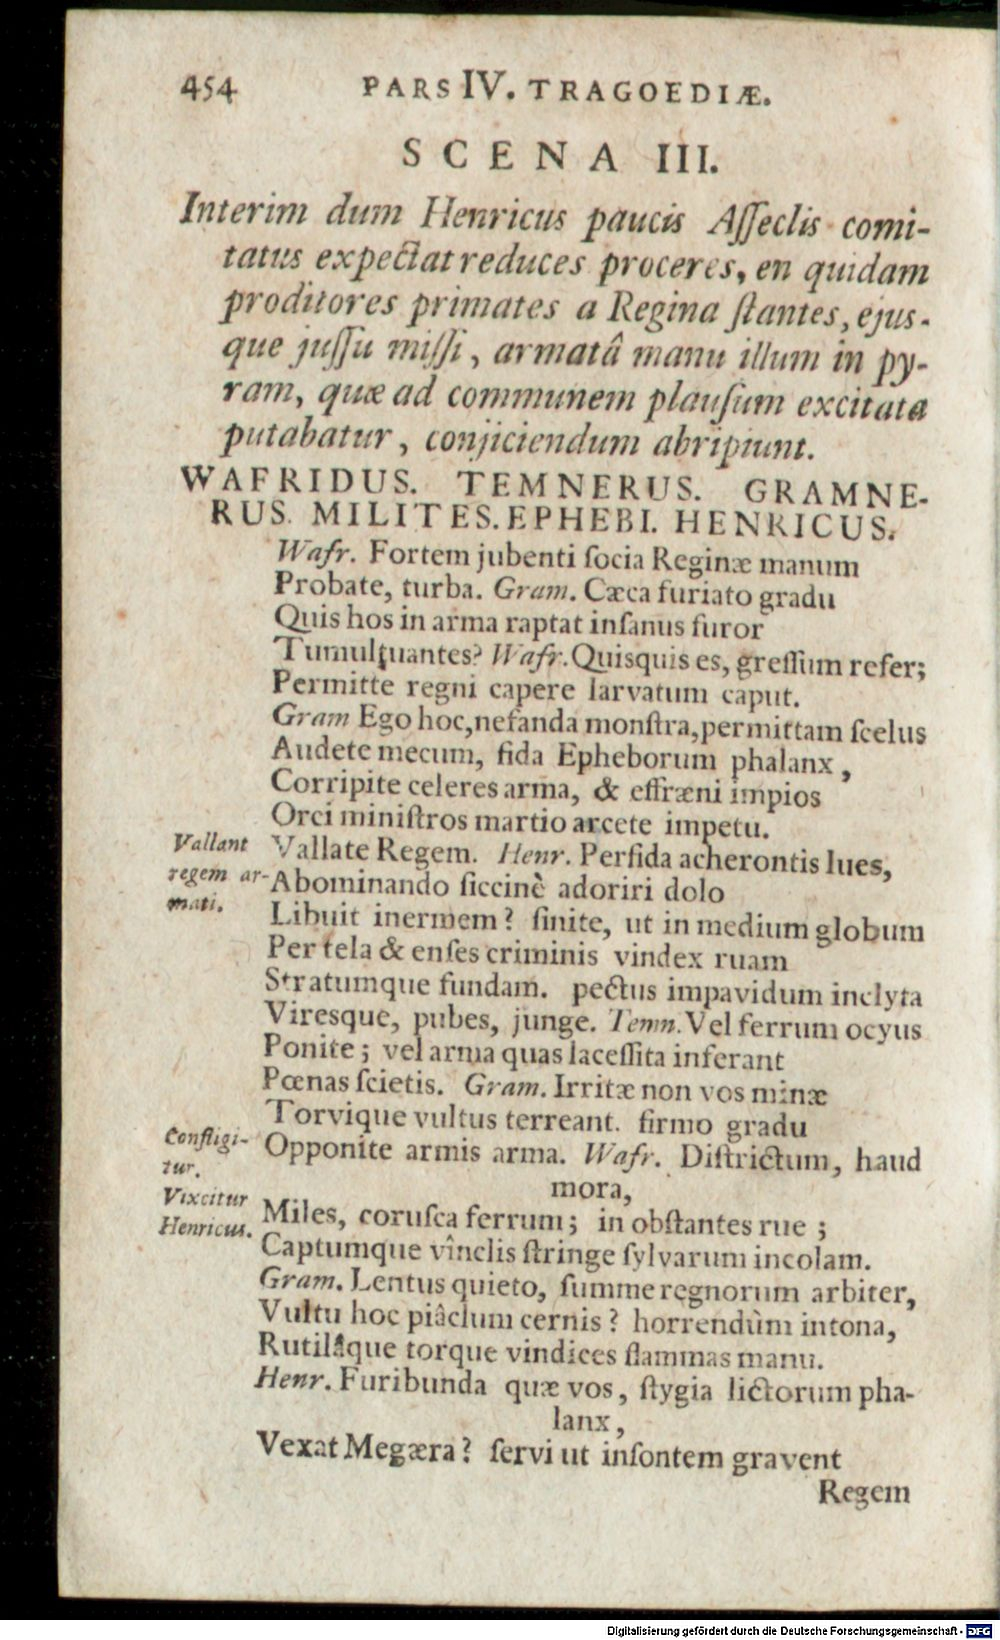 454 PARS IV. TRAGOEDIÆ.
SCENA III.
Interim dum Henricus paucis Aſſeclis comi-
tatus expectat reduces proceres, en quidam
proditores primates a Regina ſtantes, ejus-
que juſſu miſſi, armatâ manu illum in py-
ram, quæ ad communem plauſum excitata
putabatur, conjiciendum abripiunt.
WAFRIDUS. TEMNERUS. GRAMNE-
RUS. MILITES. EPHEBI. HENRICUS.
Wafr. Fortem jubenti ſocia Reginæ manum
Probate, turba. Gram. Cæca furiato gradu
Quis hos in arma raptat inſanus furor
Tumultuantes? Wafr. Quisquis es, greſſum refer;
Permitte regni capere larvatum caput.
Gram Ego hoc, nefanda monſtra, permittam ſcelus
Audete mecum, fida Epheborum phalanx,
Corripite celeres arma, & effræni impios
Orci miniſtros martio arcete impetu.
Vallant Vallate Regem. Henr. Perfida acherontis lues,
regem ar- Abominando ſiccinè adoriri dolo
mati. Libuit inermem? ſinite, ut in medium globum
Per tela & enſes criminis vindex ruam
Stratumque fundam. pectus impavidum inclyta
Viresque, pubes, junge. Temn. Vel ferrum ocyus
Ponite; vel arma quas laceſſita inferant
Pœnas ſcietis. Gram. Irritæ non vos minæ
Torvique vultus terreant. firmo gradu
Confligi- Opponite armis arma. Wafr. Diſtrictum, haud
tur. mora,
Vixcitur Miles, coruſca ferrum; in obſtantes rue;
Henricus. Captumque vînclis ſtringe ſylvarum incolam.
Gram. Lentus quieto, ſumme regnorum arbiter,
Vultu hoc piâclum cernis? horrendùm intona,
Rutilâque torque vindices flammas manu.
Henr. Furibunda quæ vos, ſtygia lictorum pha-
lanx,
Vexat Megæra? ſervi ut inſontem gravent
Regem
Digitalisierung gefördert durch die Deutsche Forschungsgemeinschaft - DFG